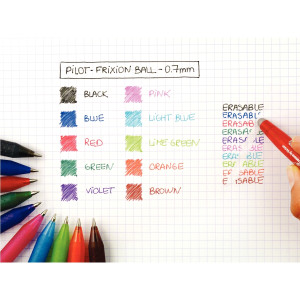 PILOT-FRIXION BALL-0.7mm
BLACK
BLUE
RED
GREEN
VIOLET
PINK
LIGHT BLUE
LIME GREEN
ORANGE
BROWN
ERASABLE
ERASABL
ERASAB
ERASABLE
ERASABLE
ERAS BLE
ERASABLE
ER ABLE
EF SABLE
E ISABLE